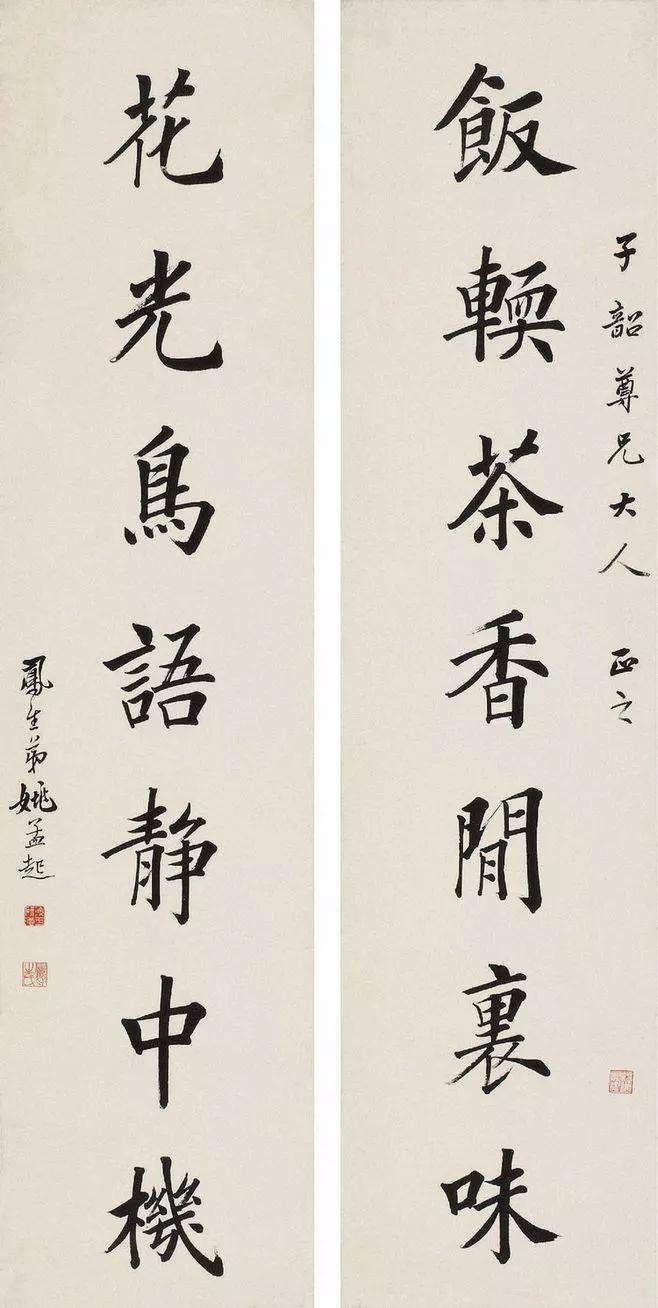 子韶尊兄大人 正之
飯輭茶香閒裏味
花光鳥語静中機
鳳生弟姚孟起